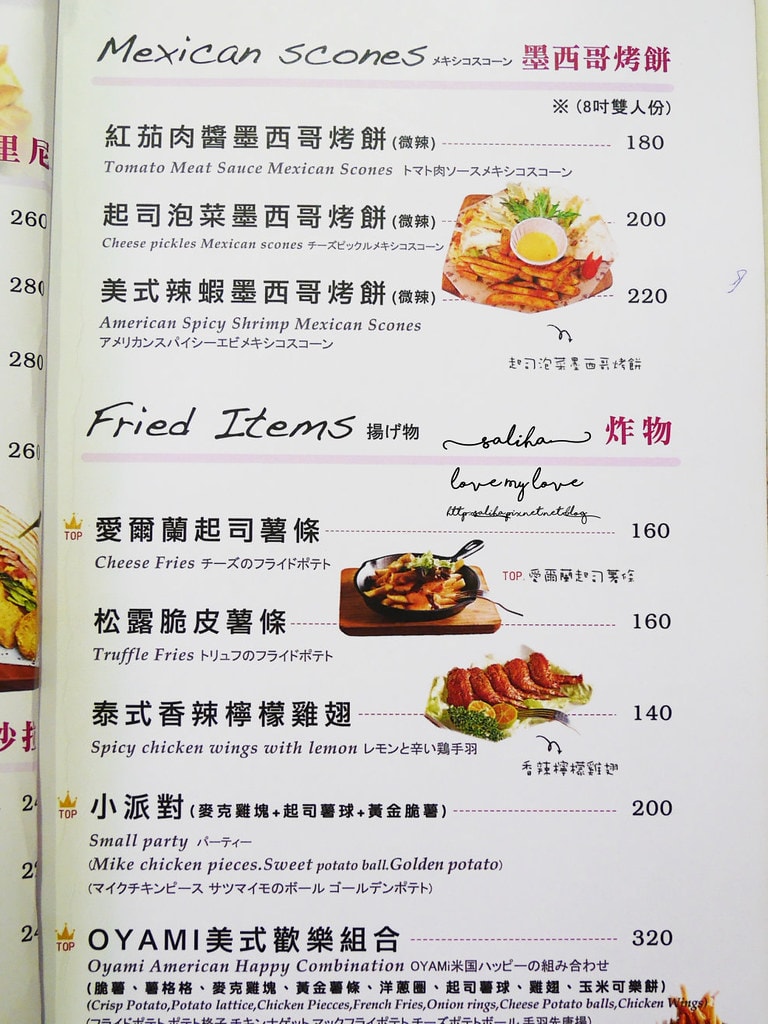 Mexican scones メキシコスコーン 墨西哥烤餅
※ (8吋雙人份)
紅茄肉醬墨西哥烤餅 (微辣) 180
Tomato Meat Sauce Mexican Scones トマト肉ソースメキシコスコーン
起司泡菜墨西哥烤餅 (微辣) 200
Cheese pickles Mexican scones チーズピックルメキシコスコーン
美式辣蝦墨西哥烤餅 (微辣) 220
American Spicy Shrimp Mexican Scones
アメリカンスパイシーエビメキシコスコーン
起司泡菜墨西哥烤餅
Fried Items 揚げ物 炸物
saliha
love my love
http:saliha.pixnet.net/blog
TOP 愛爾蘭起司薯條 160
Cheese Fries チーズのフライドポテト
TOP. 愛爾蘭起司薯條
松露脆皮薯條 160
Truffle Fries トリュフのフライドポテト
泰式香辣檸檬雞翅 140
Spicy chicken wings with lemon レモンと辛い鶏手羽
香辣檸檬雞翅
TOP 小派對 (麥克雞塊+起司薯球+黃金脆薯) 200
Small party パーティー
(Mike chicken pieces.Sweet potato ball.Golden potato)
(マイクチキンピース サツマイモのボール ゴールデンポテト)
TOP OYAMI美式歡樂組合 320
Oyami American Happy Combination OYAMi米国ハッピーの組み合わせ
(脆薯、薯格格、麥克雞塊、黃金薯條、洋蔥圈、起司薯球、雞翅、玉米可樂餅)
(Crisp Potato,Potato lattice,Chicken Piecces,French Fries,Onion rings,Cheese Potato balls,Chicken Wings)
里尼
260
280
280
260